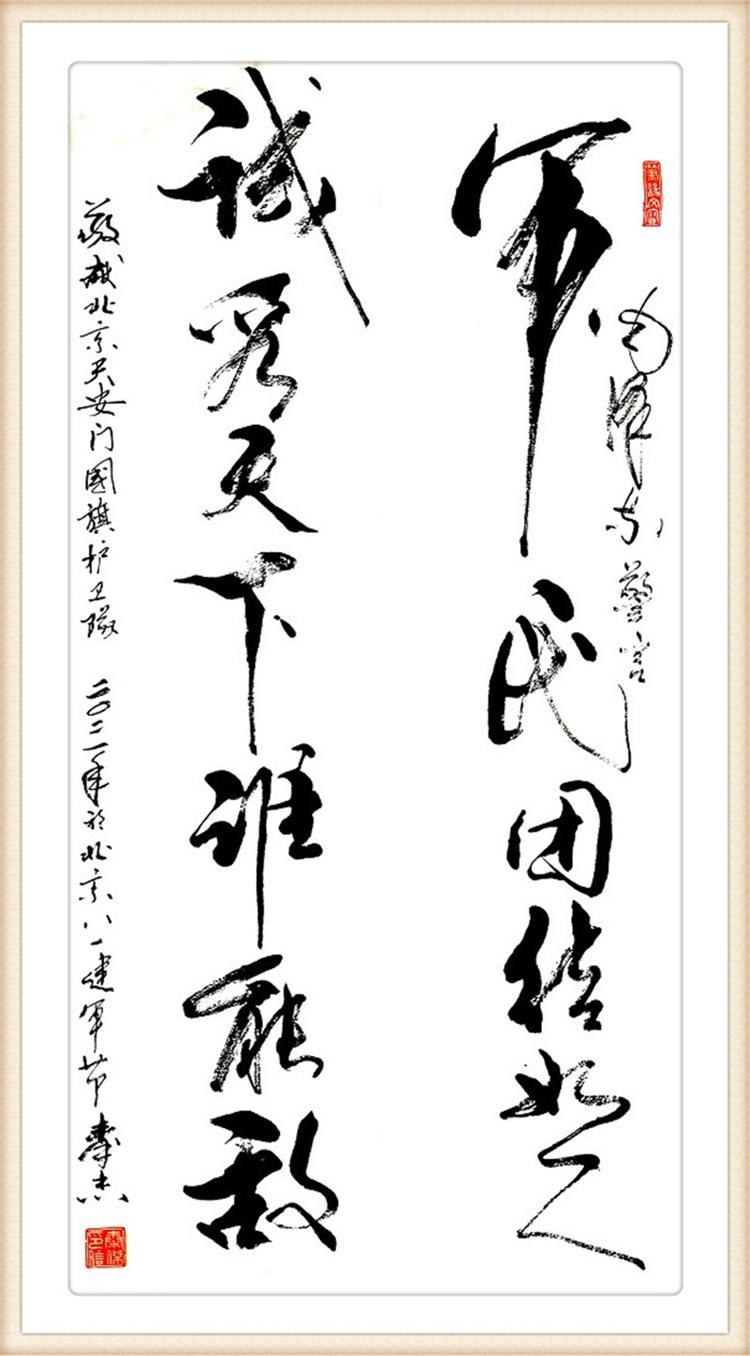 泽东警言
军民团结如一人
试看天下谁能敌
敬献北京天安门國旗护卫队 二〇二一年於北京八一建军节 秦杰
秦傑印信